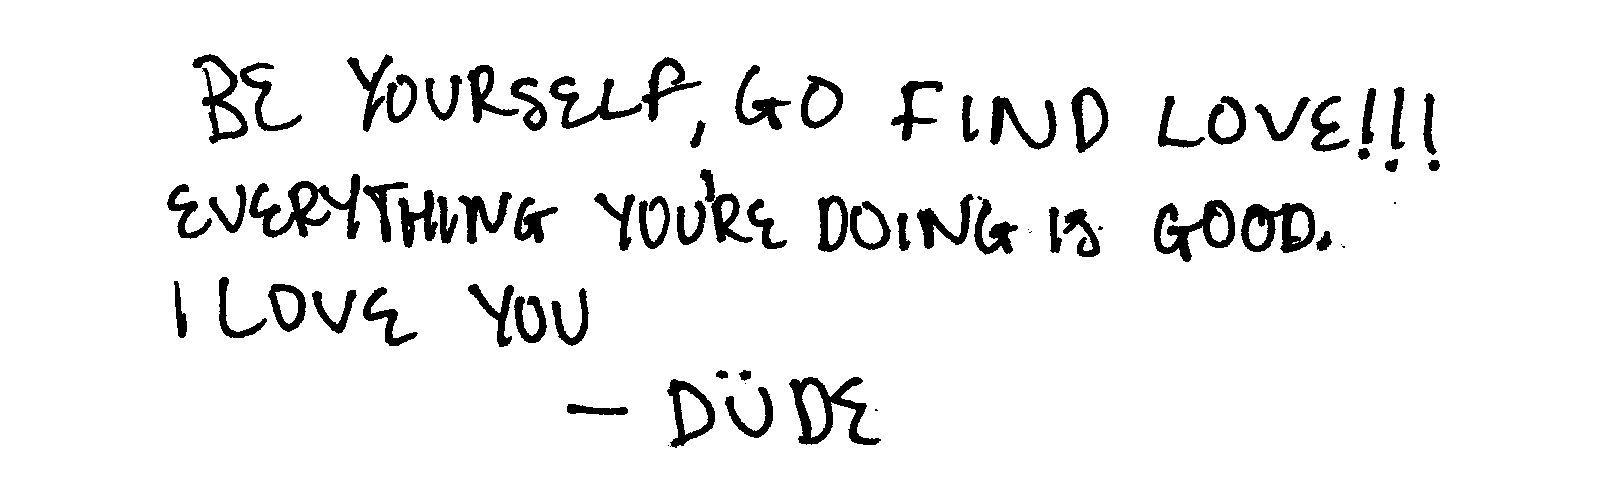 BE YOURSELF, GO FIND LOVE!!!
EVERYTHING YOU'RE DOING IS GOOD.
I LOVE YOU
— DÜDE